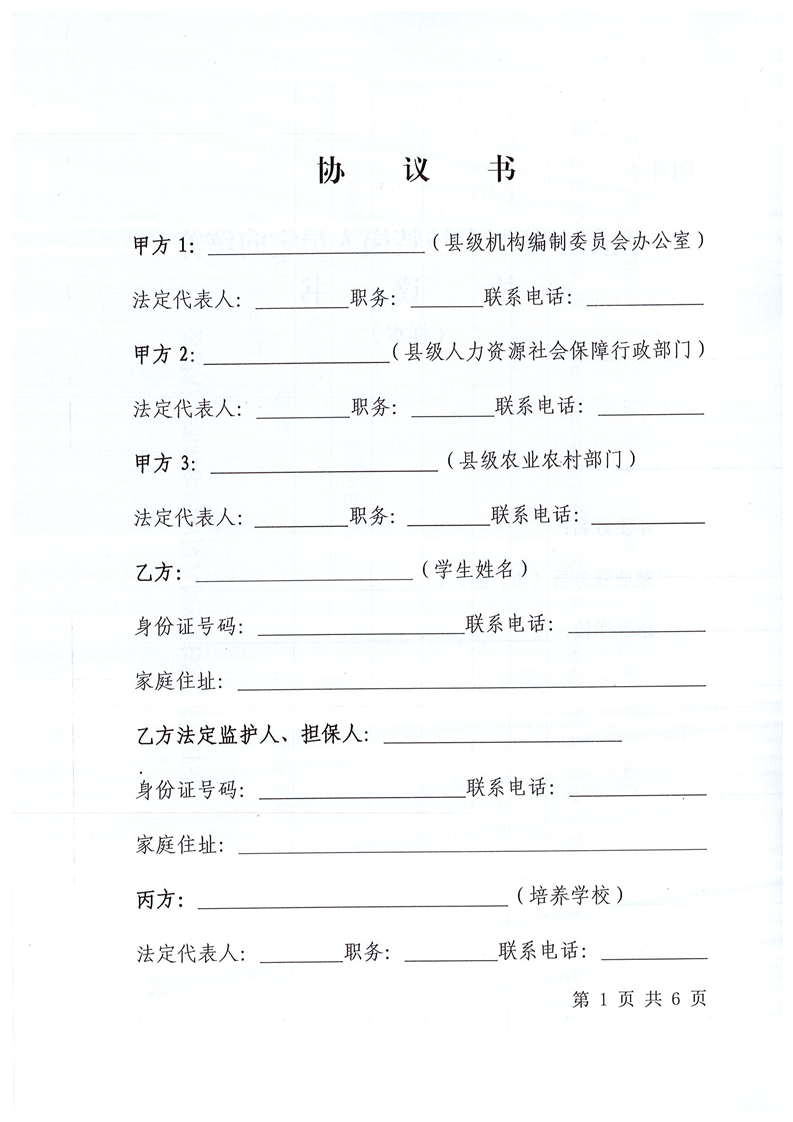 协 议 书
甲方 1：____________________（县级机构编制委员会办公室）
法定代表人：________职务：________联系电话：___________
甲方 2：_________________（县级人力资源社会保障行政部门）
法定代表人：_________职务：________联系电话：__________
甲方 3：_____________________（县级农业农村部门）
法定代表人：_________职务：________联系电话：__________
乙方：____________________（学生姓名）
身份证号码：___________________联系电话：____________
家庭住址：___________________________________________
乙方法定监护人、担保人：______________________
身份证号码：___________________联系电话：____________
家庭住址：___________________________________________
丙方：____________________________（培养学校）
法定代表人：________职务：_________联系电话：_________
第 1 页 共 6 页